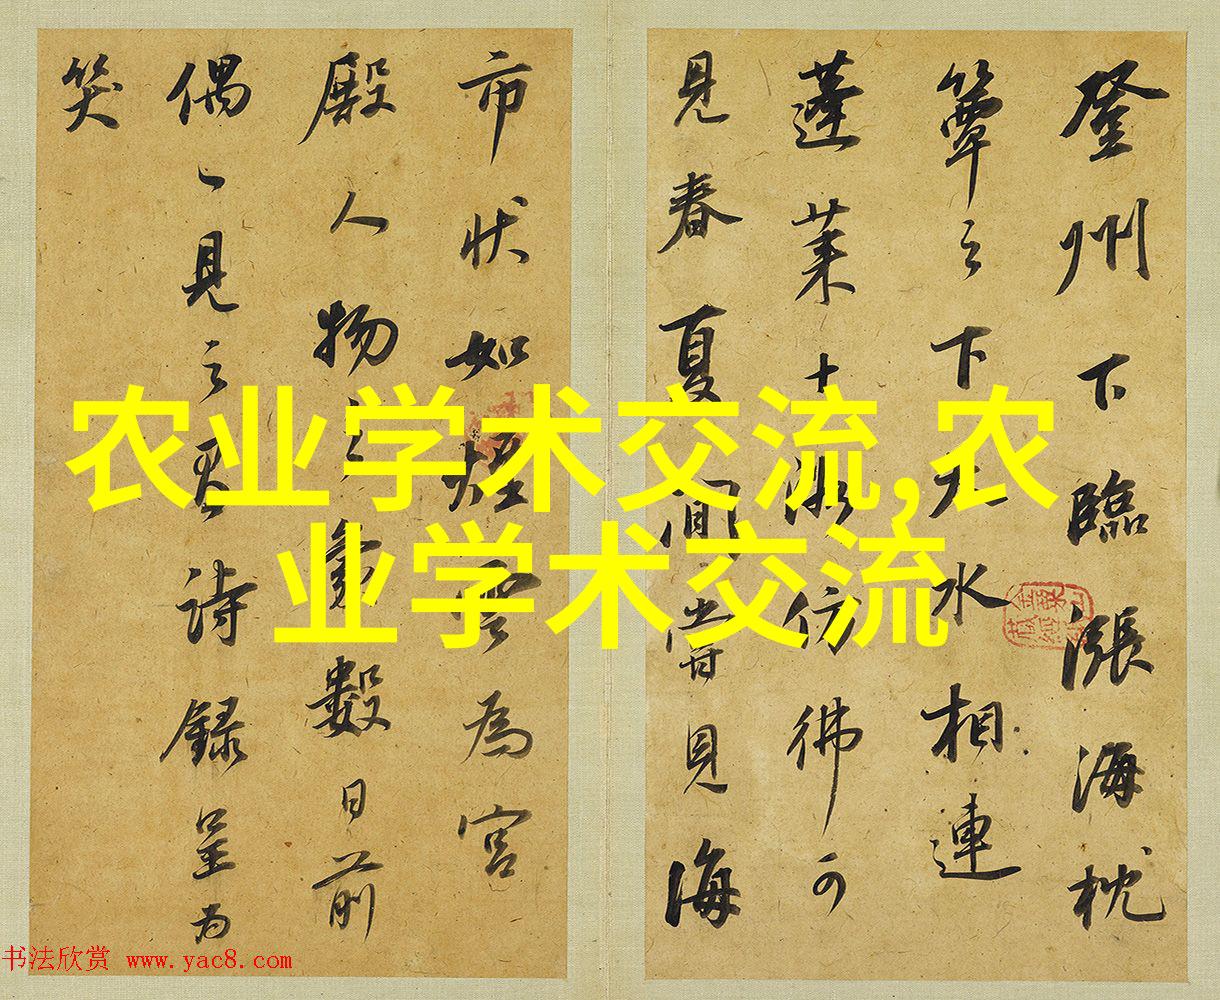 登州下臨漲海枕
簟之下天水相連
蓬萊十洲彷彿可
見春夏間常見海
市狀如煙雲為宮
殿人物之象數日前
偶見之有詩錄呈為
笑
农业学术交流,农
业学术交流
书法欣赏 www.yac8.com